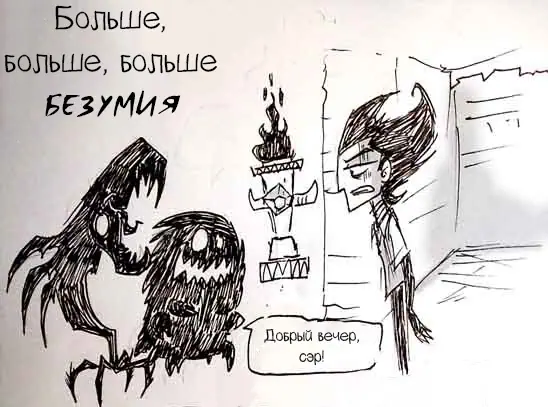 Больше,
больше, больше
БЕЗУМИЯ
Добрый вечер,
сэр!